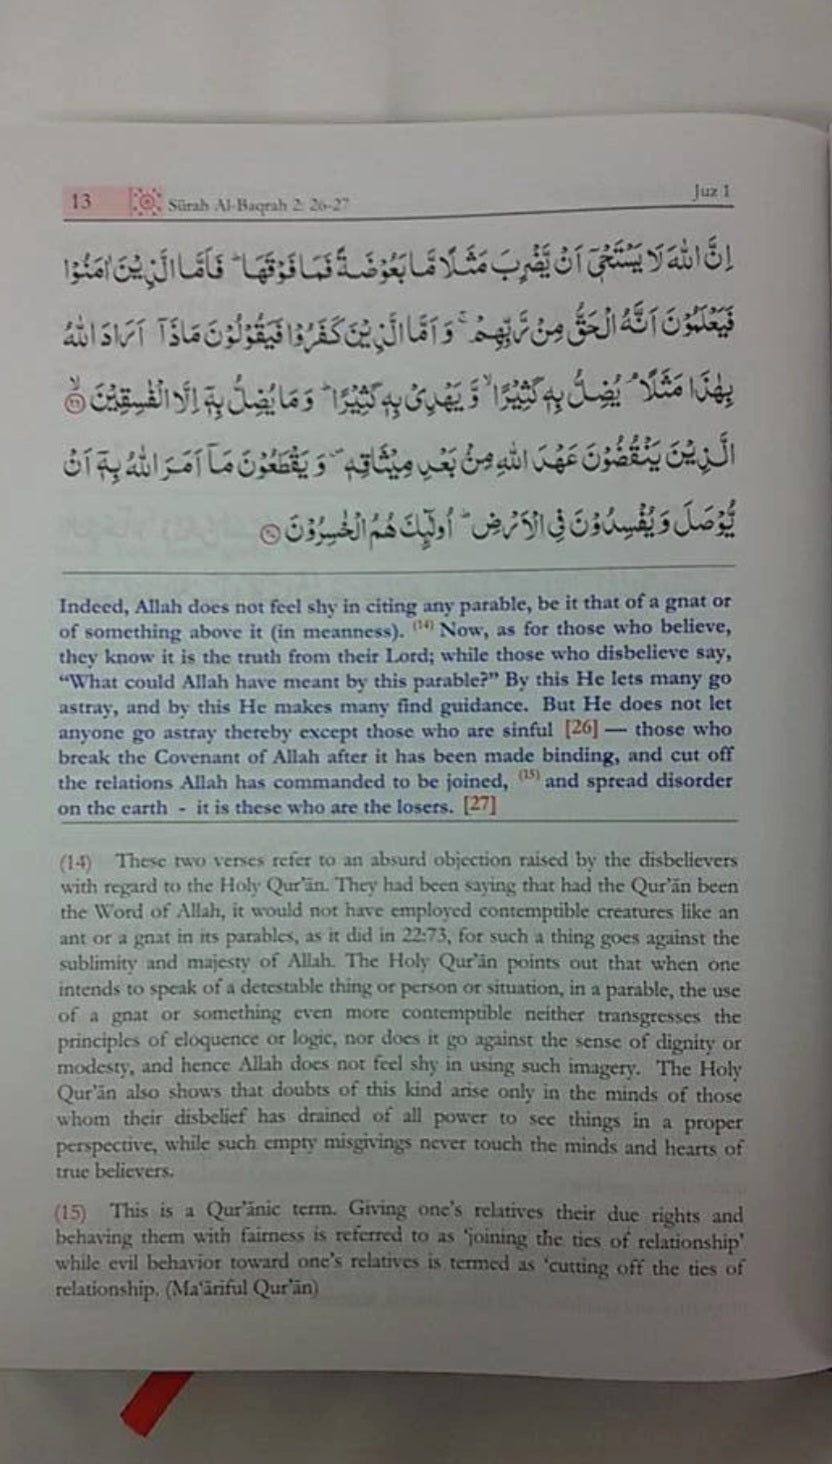 13 Sūrah Al-Baqrah 2: 26-27 Juz 1
اِنَّ اللّٰهَ لَا يَسْتَحْيٖۤ اَنْ يَّضْرِبَ مَثَلًا مَّا بَعُوْضَةً فَمَا فَوْقَهَا ؕ فَاَمَّا الَّذِيْنَ اٰمَنُوْا
فَيَعْلَمُوْنَ اَنَّهُ الْحَقُّ مِنْ رَّبِّهِمْ ۚ وَ اَمَّا الَّذِيْنَ كَفَرُوْا فَيَقُوْلُوْنَ مَاذَاۤ اَرَادَ اللّٰهُ
بِهٰذَا مَثَلًا ۘ يُضِلُّ بِهٖ كَثِيْرًا ۙ وَّ يَهْدِىْ بِهٖ كَثِيْرًا ؕ وَ مَا يُضِلُّ بِهٖۤ اِلَّا الْفٰسِقِيْنَ ۙ ﴿۲۶﴾
الَّذِيْنَ يَنْقُضُوْنَ عَهْدَ اللّٰهِ مِنْۢ بَعْدِ مِيْثَاقِهٖ ۪ وَ يَقْطَعُوْنَ مَاۤ اَمَرَ اللّٰهُ بِهٖۤ اَنْ
يُّوْصَلَ وَ يُفْسِدُوْنَ فِى الْاَرْضِ ؕ اُولٰٓئِكَ هُمُ الْخٰسِرُوْنَ ﴿۲۷﴾
Indeed, Allah does not feel shy in citing any parable, be it that of a gnat or
of something above it (in meanness). (14) Now, as for those who believe,
they know it is the truth from their Lord; while those who disbelieve say,
“What could Allah have meant by this parable?” By this He lets many go
astray, and by this He makes many find guidance. But He does not let
anyone go astray thereby except those who are sinful [26] — those who
break the Covenant of Allah after it has been made binding, and cut off
the relations Allah has commanded to be joined, (15) and spread disorder
on the earth - it is these who are the losers. [27]
(14) These two verses refer to an absurd objection raised by the disbelievers
with regard to the Holy Qur’ān. They had been saying that had the Qur’ān been
the Word of Allah, it would not have employed contemptible creatures like an
ant or a gnat in its parables, as it did in 22:73, for such a thing goes against the
sublimity and majesty of Allah. The Holy Qur’ān points out that when one
intends to speak of a detestable thing or person or situation, in a parable, the use
of a gnat or something even more contemptible neither transgresses the
principles of eloquence or logic, nor does it go against the sense of dignity or
modesty, and hence Allah does not feel shy in using such imagery. The Holy
Qur’ān also shows that doubts of this kind arise only in the minds of those
whom their disbelief has drained of all power to see things in a proper
perspective, while such empty misgivings never touch the minds and hearts of
true believers.
(15) This is a Qur’ānic term. Giving one’s relatives their due rights and
behaving them with fairness is referred to as ‘joining the ties of relationship’
while evil behavior toward one’s relatives is termed as ‘cutting off the ties of
relationship. (Ma‘āriful Qur’ān)